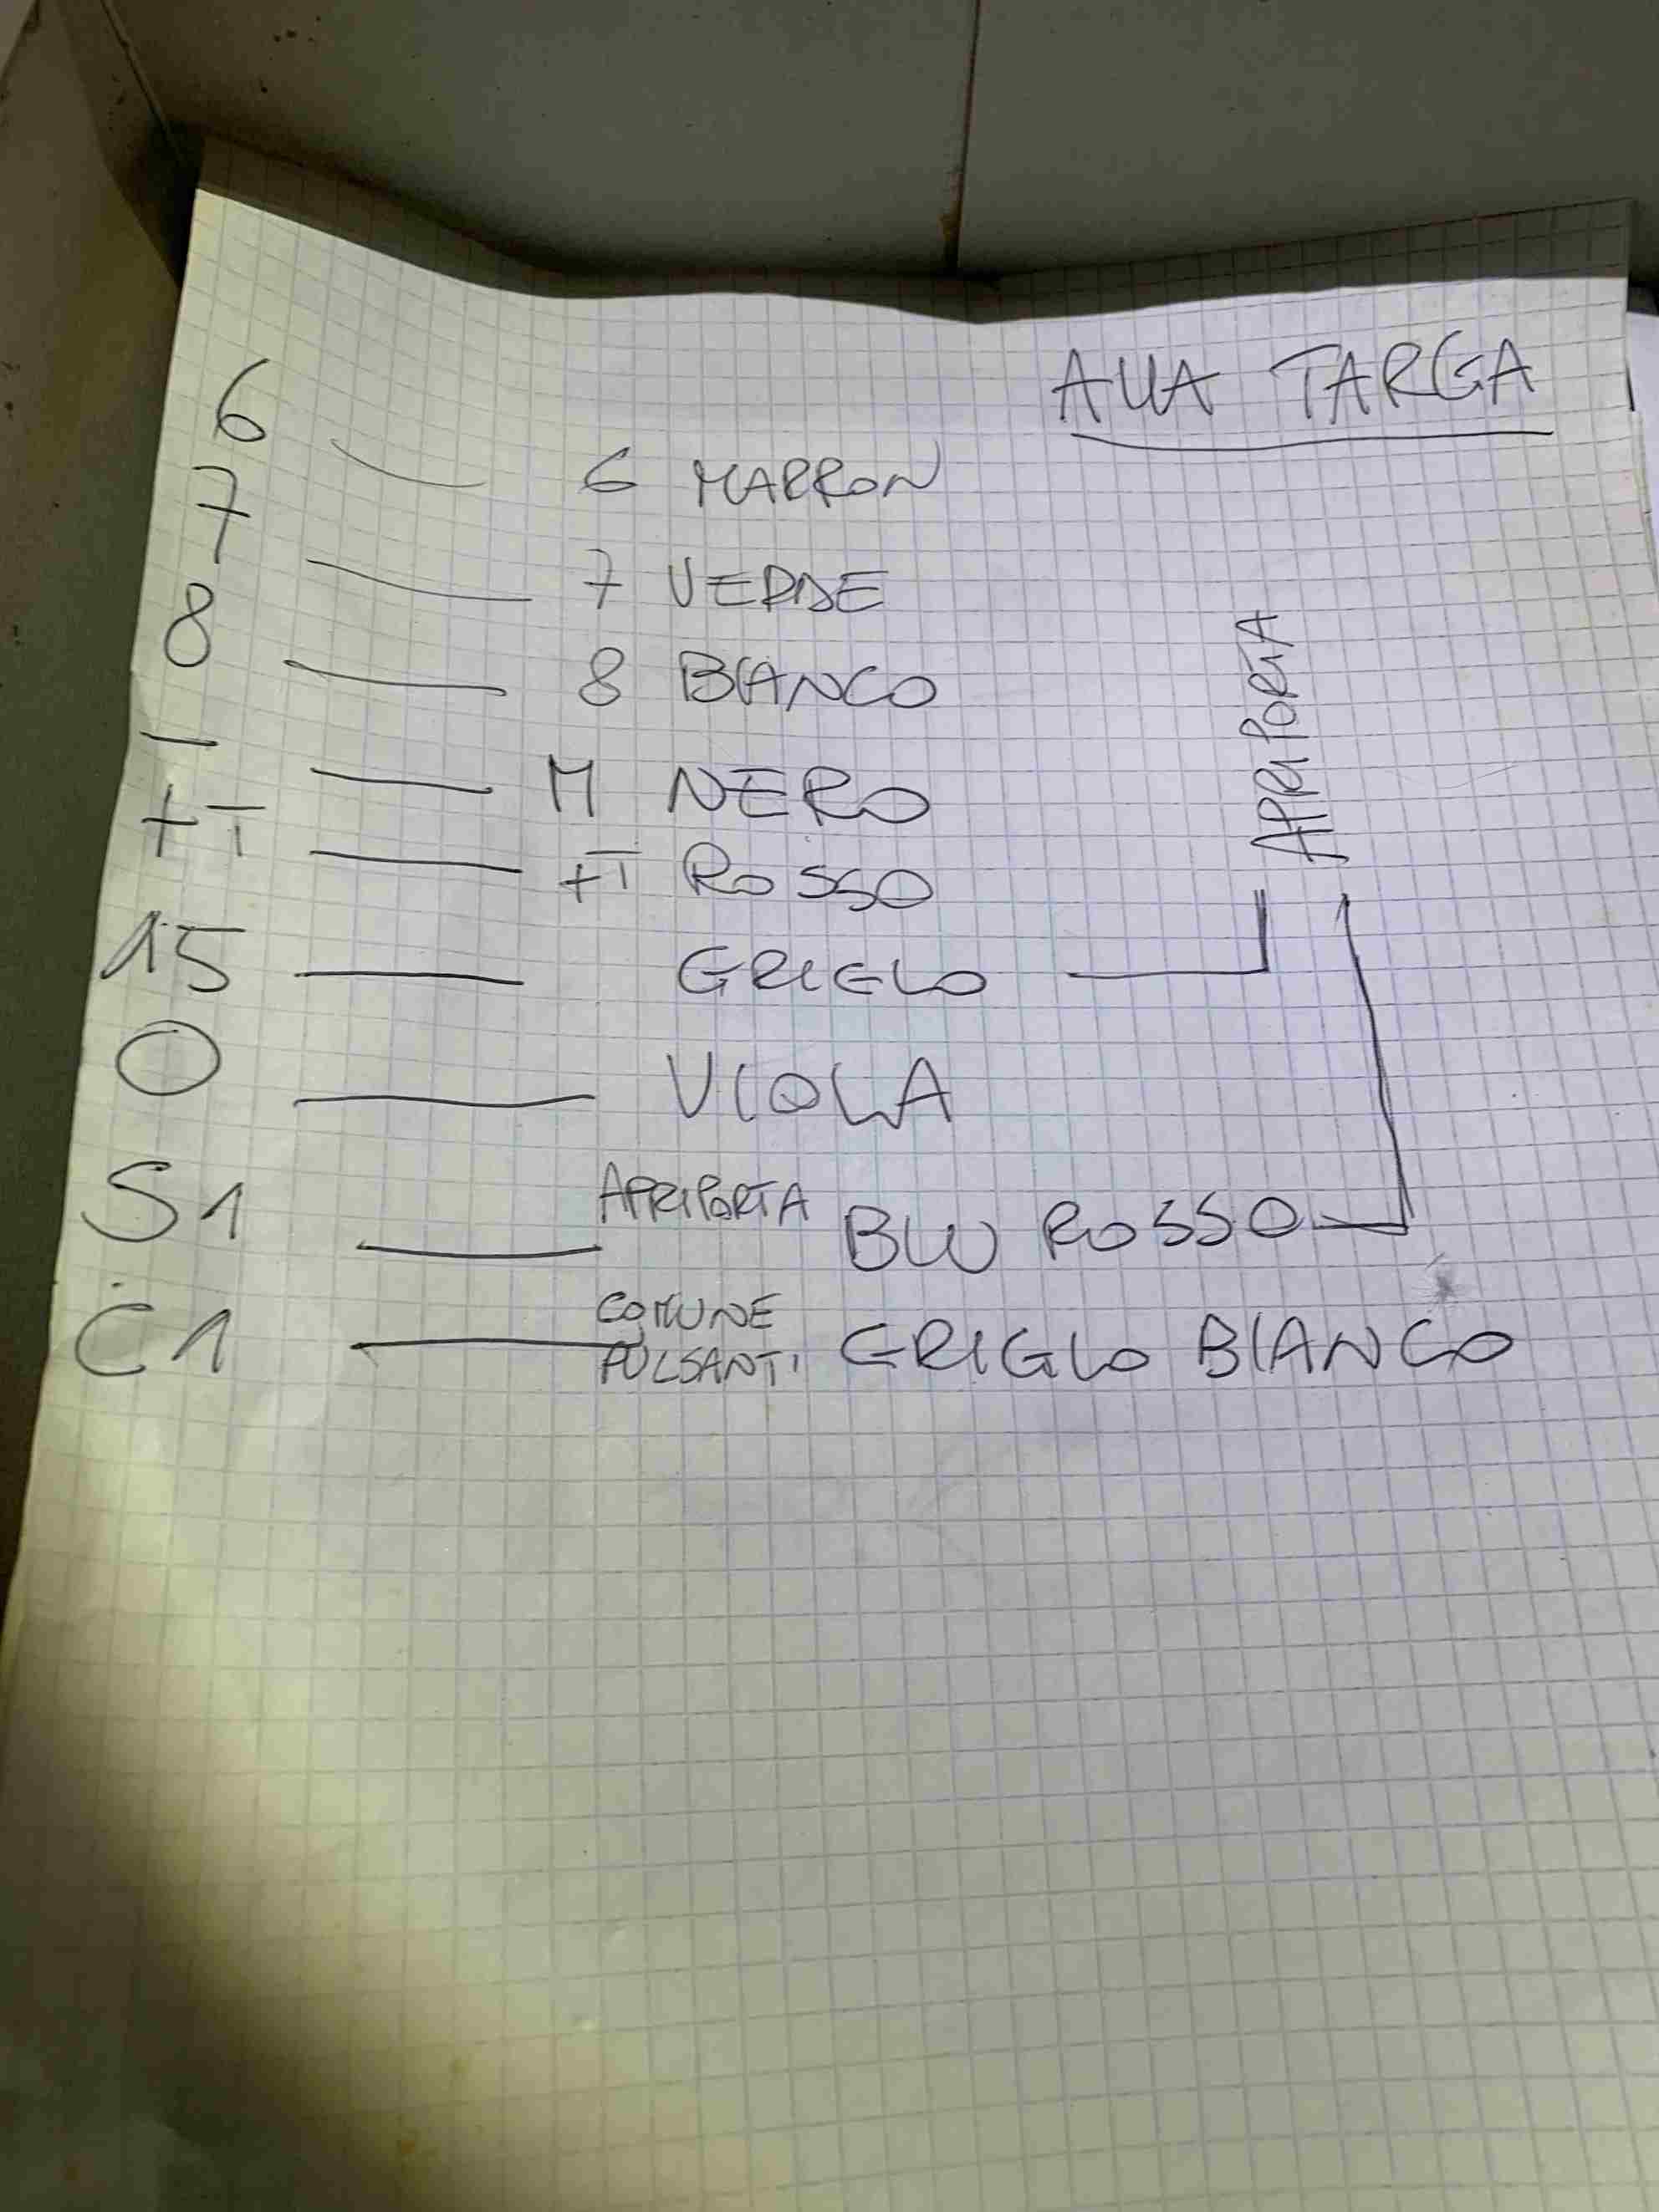 ALLA TARGA
6 — 6 MARRON
7 — 7 VERDE
8 — 8 BIANCO
- — M NERO
+T — +T ROSSO
15 — GRIGIO
O — VIOLA
S1 — APRIPORTA BLU ROSSO
C1 — COMUNE PULSANTI GRIGIO BIANCO
APRI PORTA